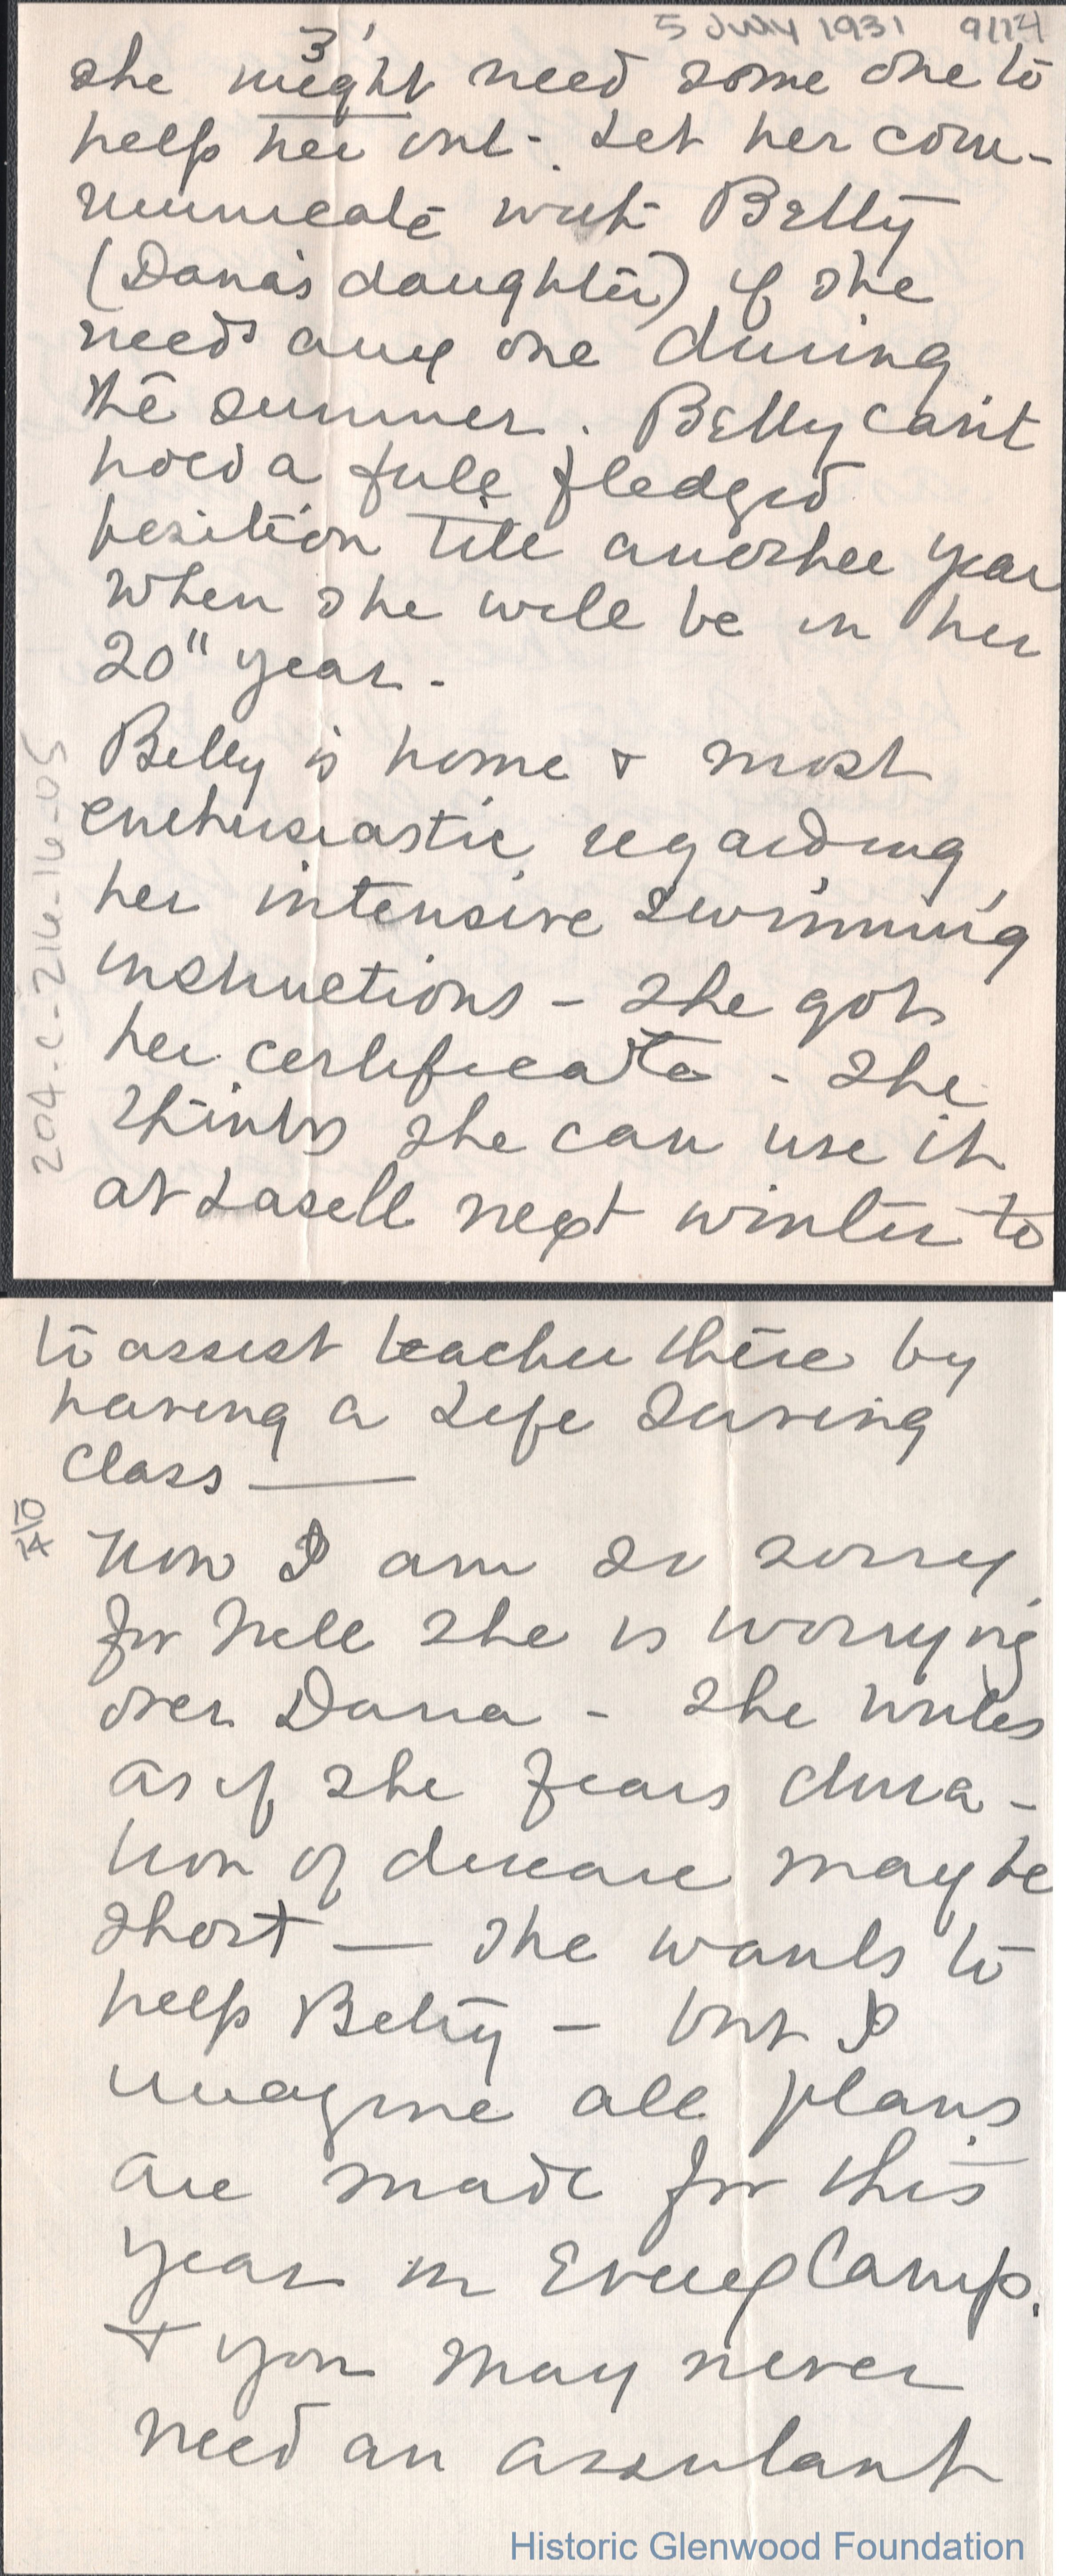 5 July 1931 9/14
3
she might need some one to
help her out - Let her com-
municate with Betty
(Dana's daughter) if she
needs any one during
the summer. Betty can't
hold a full fledged
position till another year
when she will be in her
20" year -
Betty is home & most
enthusiastic regarding
her intensive swimming
instructions - She got
her certificate - She
thinks she can use it
at Lasell next winter to
204-C-216-16-05
to assist teacher there by
having a Life Saving
Class —
10/14
Now I am so sorry
for Nell she is worrying
over Dana - She writes
as if she fears dura-
tion of disease may be
short — She wants to
help Betty - but I
imagine all plans
are made for this
year in Every Camp.
& you may never
need an assistant
Historic Glenwood Foundation